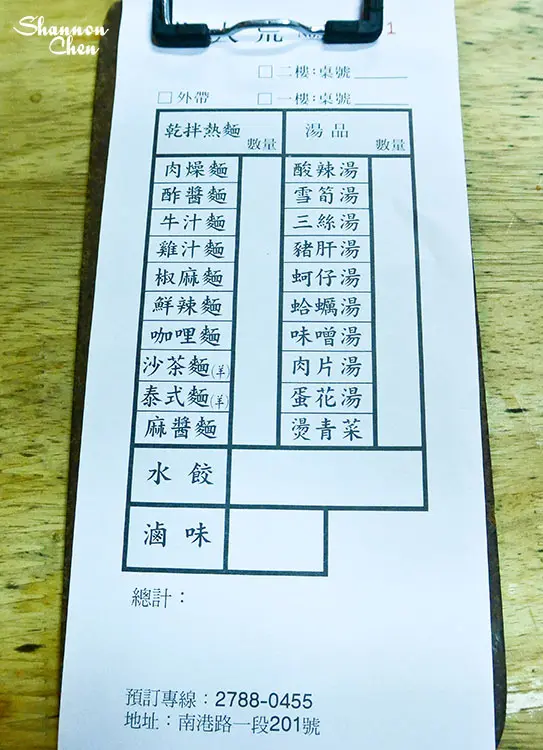 Shannon
Chen
1
□二樓:桌號______
□外帶 □一樓:桌號______
乾拌熱麵 數量 湯品 數量
肉燥麵 酸辣湯
酢醬麵 雪筍湯
牛汁麵 三絲湯
雞汁麵 豬肝湯
椒麻麵 蚵仔湯
鮮辣麵 蛤蠣湯
咖哩麵 味噌湯
沙茶麵(羊) 肉片湯
泰式麵(羊) 蛋花湯
麻醬麵 燙青菜
水餃
滷味
總計：
預訂專線：2788-0455
地址：南港路一段201號